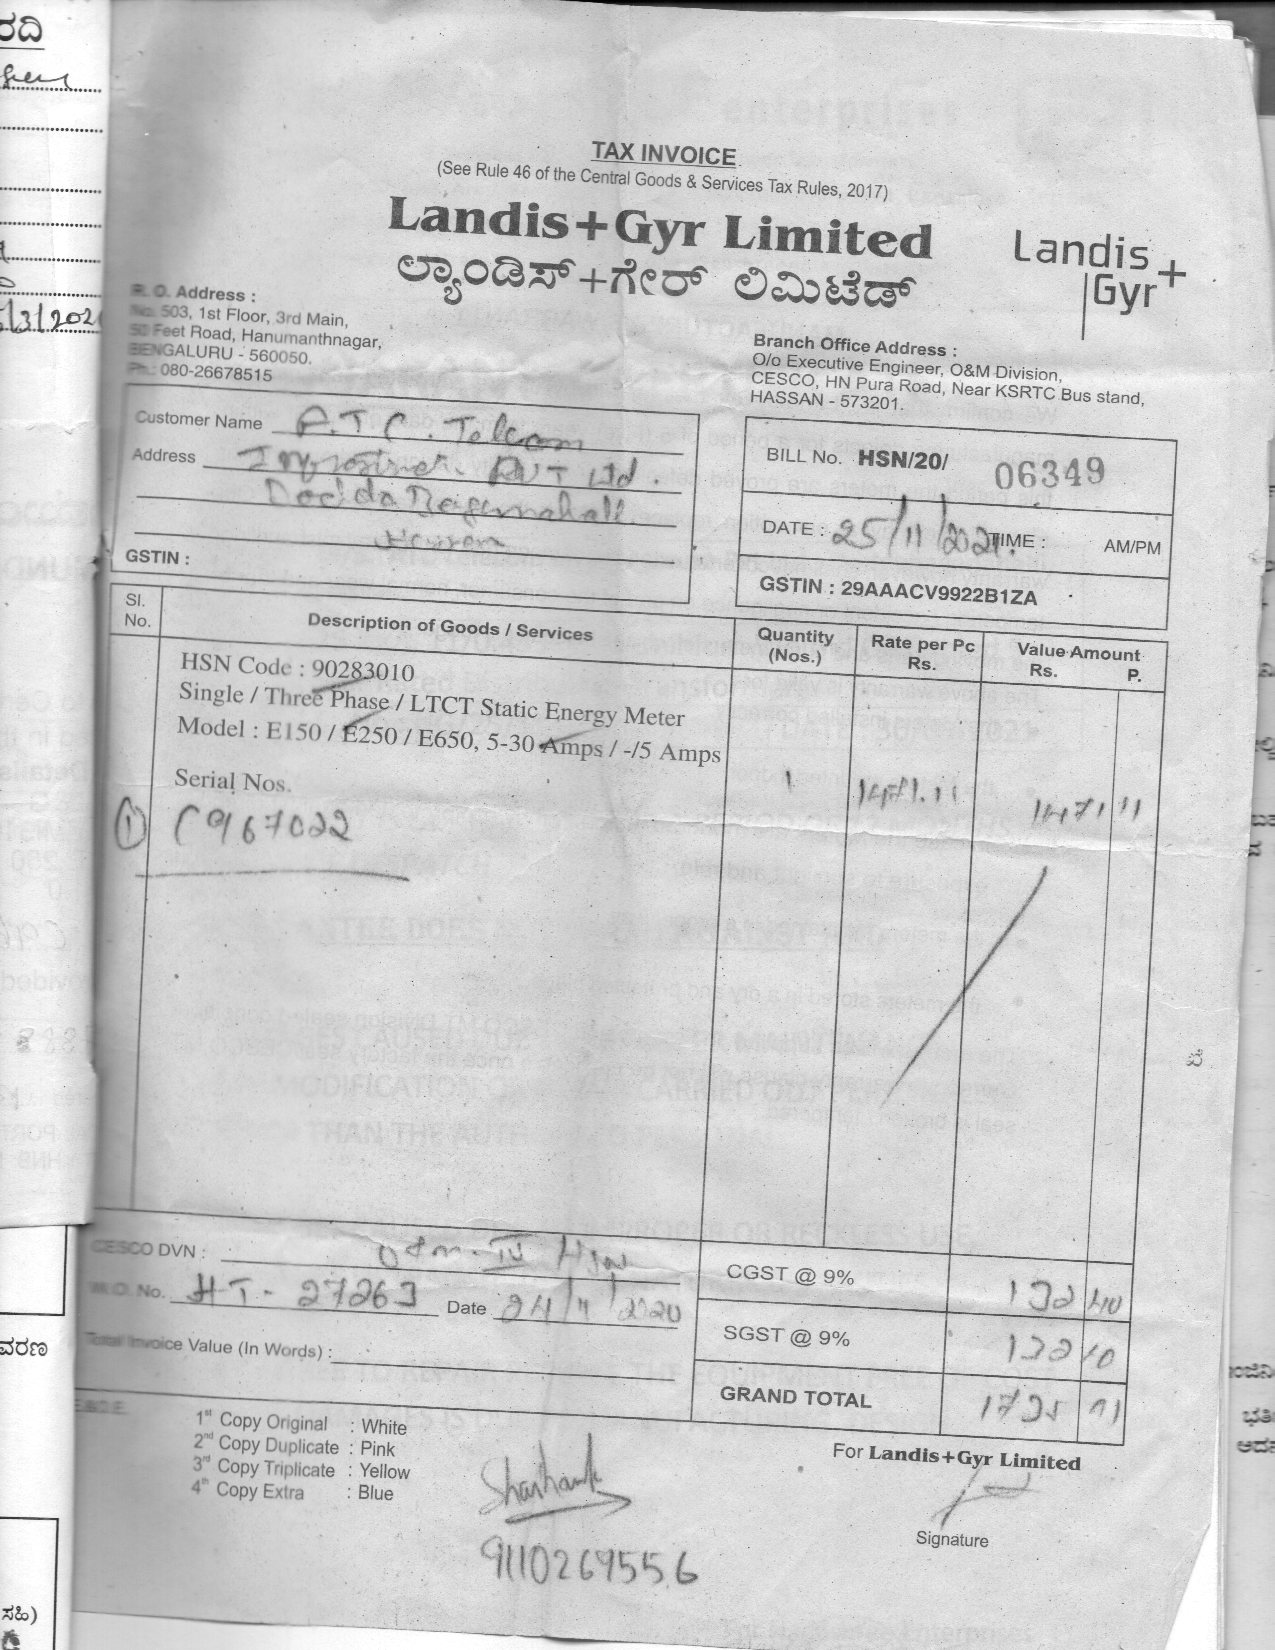 TAX INVOICE
(See Rule 46 of the Central Goods & Services Tax Rules, 2017)
Landis+Gyr Limited
ಲ್ಯಾಂಡಿಸ್+ಗೇರ್ ಲಿಮಿಟೆಡ್
Landis+
Gyr
R. O. Address :
No. 503, 1st Floor, 3rd Main,
50 Feet Road, Hanumanthnagar,
BENGALURU - 560050.
Ph.: 080-26678515
Branch Office Address :
O/o Executive Engineer, O&M Division,
CESCO, HN Pura Road, Near KSRTC Bus stand,
HASSAN - 573201.
Customer Name A.T.C. Telcom
Address PVT Ltd.
Dodda
Hassan
GSTIN :
BILL No. HSN/20/ 06349
DATE : 25/11/202 TIME : AM/PM
GSTIN : 29AAACV9922B1ZA
Sl. No. Description of Goods / Services Quantity (Nos.) Rate per Pc Rs. Value Amount Rs. P.
HSN Code : 90283010
Single / Three Phase / LTCT Static Energy Meter
Model : E150 / E250 / E650, 5-30 Amps / -/5 Amps
Serial Nos. 1 1471.11 1471 11
① C967022
CESCO DVN : O&M-IV Hsn
W.O. No. HT-27263 Date 24/11/2020
Total Invoice Value (In Words) :
CGST @ 9% 132 40
SGST @ 9% 132 40
GRAND TOTAL 1735 91
E.&O.E.
1st Copy Original : White
2nd Copy Duplicate : Pink
3rd Copy Triplicate : Yellow
4th Copy Extra : Blue
For Landis+Gyr Limited
Shashank
Signature
9110269556
ರದಿ
/3/202
ವರಣ
ಸಹಿ)